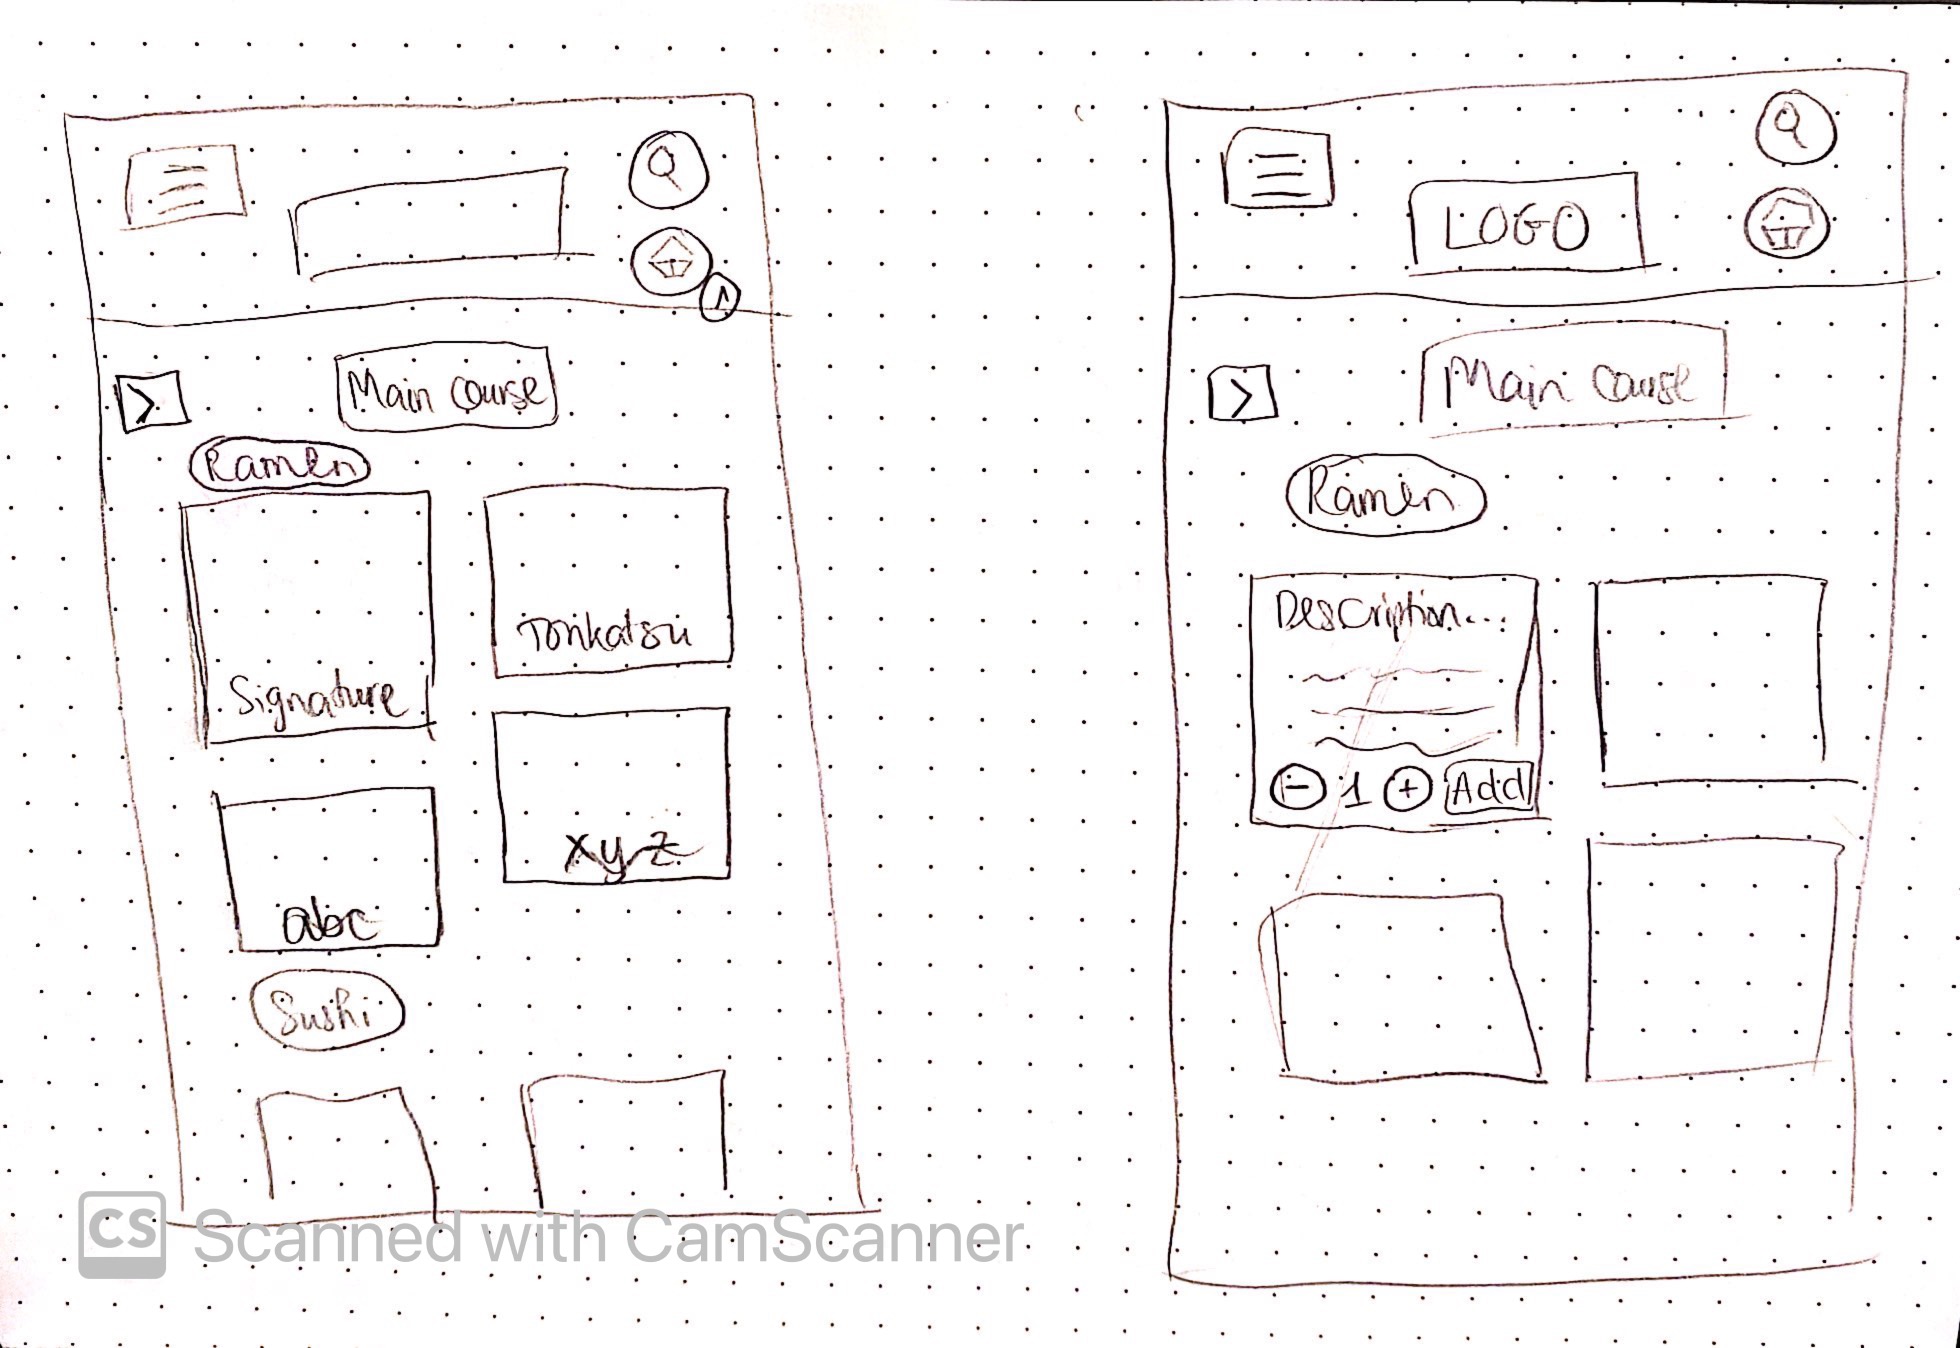 1
Main course
Ramen
Signature
Tonkatsu
xyz
abc
Sushi
LOGO
Main course
Ramen
Description...
- 1 + Add
CS Scanned with CamScanner